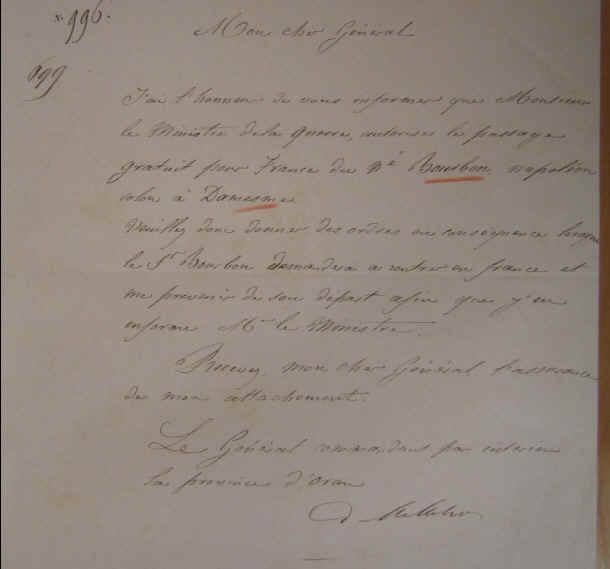 N. 996.
699
Mon cher Général
J'ai l'honneur de vous informer que Monsieur
le Ministre de la guerre, autorise le passage
gratuit pour France du né Bourbon, napoléon
colon à Damesme.
Veuillez donc donner des ordres en conséquence lorsque
le Sr. Bourbon demandera à rentrer en france et
me prévenir de son départ afin que j'en
informe Mr. le Ministre.
Recevez, mon cher Général l'assurance
de mon attachement.
Le Général commandant par interim
la province d'oran